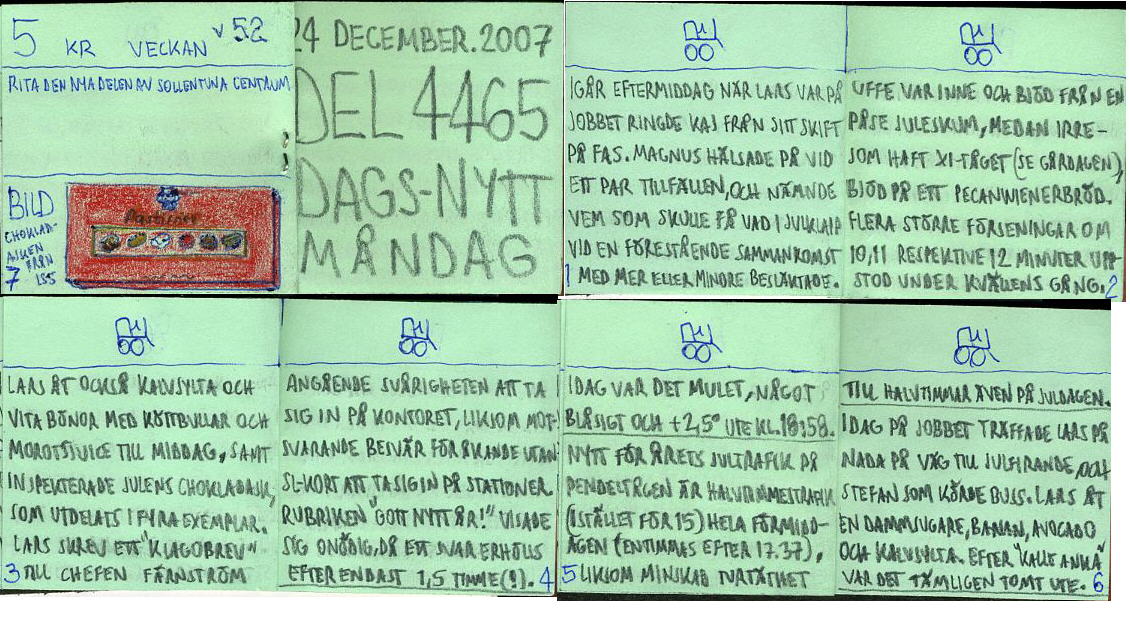 5 KR VECKAN V 52
RITA DEN NYA DELEN AV SOLLENTUNA CENTRUM
BILD
CHOKLAD-
ASKEN
FRÅN
7 ISS
24 DECEMBER. 2007
DEL 4465
DAGS-NYTT
MÅNDAG
IGÅR EFTERMIDDAG NÄR LARS VAR PÅ
JOBBET RINGDE KAJ FRÅN SITT SKIFT
PÅ FAS. MAGNUS HÄLSADE PÅ VID
ETT PAR TILLFÄLLEN, OCH NÄMNDE
VEM SOM SKULLE FÅ VAD I JULKLAPP
VID EN FÖRESTÅENDE SAMMANKOMST
1 MED MER ELLER MINDRE BESLÄKTADE.
UFFE VAR INNE OCH BJÖD FRÅN EN
PÅSE JULESKUM, MEDAN IRRE-
SOM HAFT XI-TÅGET (SE GÅRDAGEN),
BJÖD PÅ ETT PECANWIENERBRÖD.
FLERA STÖRRE FÖRSENINGAR OM
10, 11 RESPEKTIVE 12 MINUTER UPP-
STOD UNDER KVÄLLENS GÅNG. 2
LARS ÅT OCKSÅ KALVSYLTA OCH
VITA BÖNOR MED KÖTTBULLAR OCH
MOROTSJUICE TILL MIDDAG, SAMT
INSPEKTERADE JULENS CHOKLADASK,
SOM UTDELATS I FYRA EXEMPLAR.
LARS SKREV ETT "KLAGOBREV"
3 TILL CHEFEN FÄRNSTRÖM
ANGÅENDE SVÅRIGHETEN ATT TA
SIG IN PÅ KONTORET, LIKSOM MOT-
SVARANDE BESVÄR FÖR ÅKANDE UTAN
SL-KORT ATT TA SIG IN PÅ STATIONER.
RUBRIKEN "GOTT NYTT ÅR!" VISADE
SIG ONÖDIG, DÅ ETT SVAR ERHÖLLS
EFTER ENDAST 1,5 TIMME (!). 4
IDAG VAR DET MULET, NÅGOT
BLÅSIGT OCH +2,5° UTE KL. 18:58.
NYTT FÖR ÅRETS JULTRAFIK PÅ
PENDELTÅGEN ÄR HALVTIMMESTRAFIK
(ISTÄLLET FÖR 15) HELA FÖRMIDD-
AGEN (ENTIMMAS EFTER 17.37),
5 LIKSOM MINSKAD TURTÄTHET
TILL HALVTIMMAR ÄVEN PÅ JULDAGEN.
IDAG PÅ JOBBET TRÄFFADE LARS PÅ
NADA PÅ VÄG TILL JULFIRANDE, OCH
STEFAN SOM KÖRDE BUSS. LARS ÅT
EN DAMMSUGARE, BANAN, AVOCADO
OCH KALVSYLTA. EFTER "KALLE ANKA"
VAR DET TÄMLIGEN TOMT UTE. 6